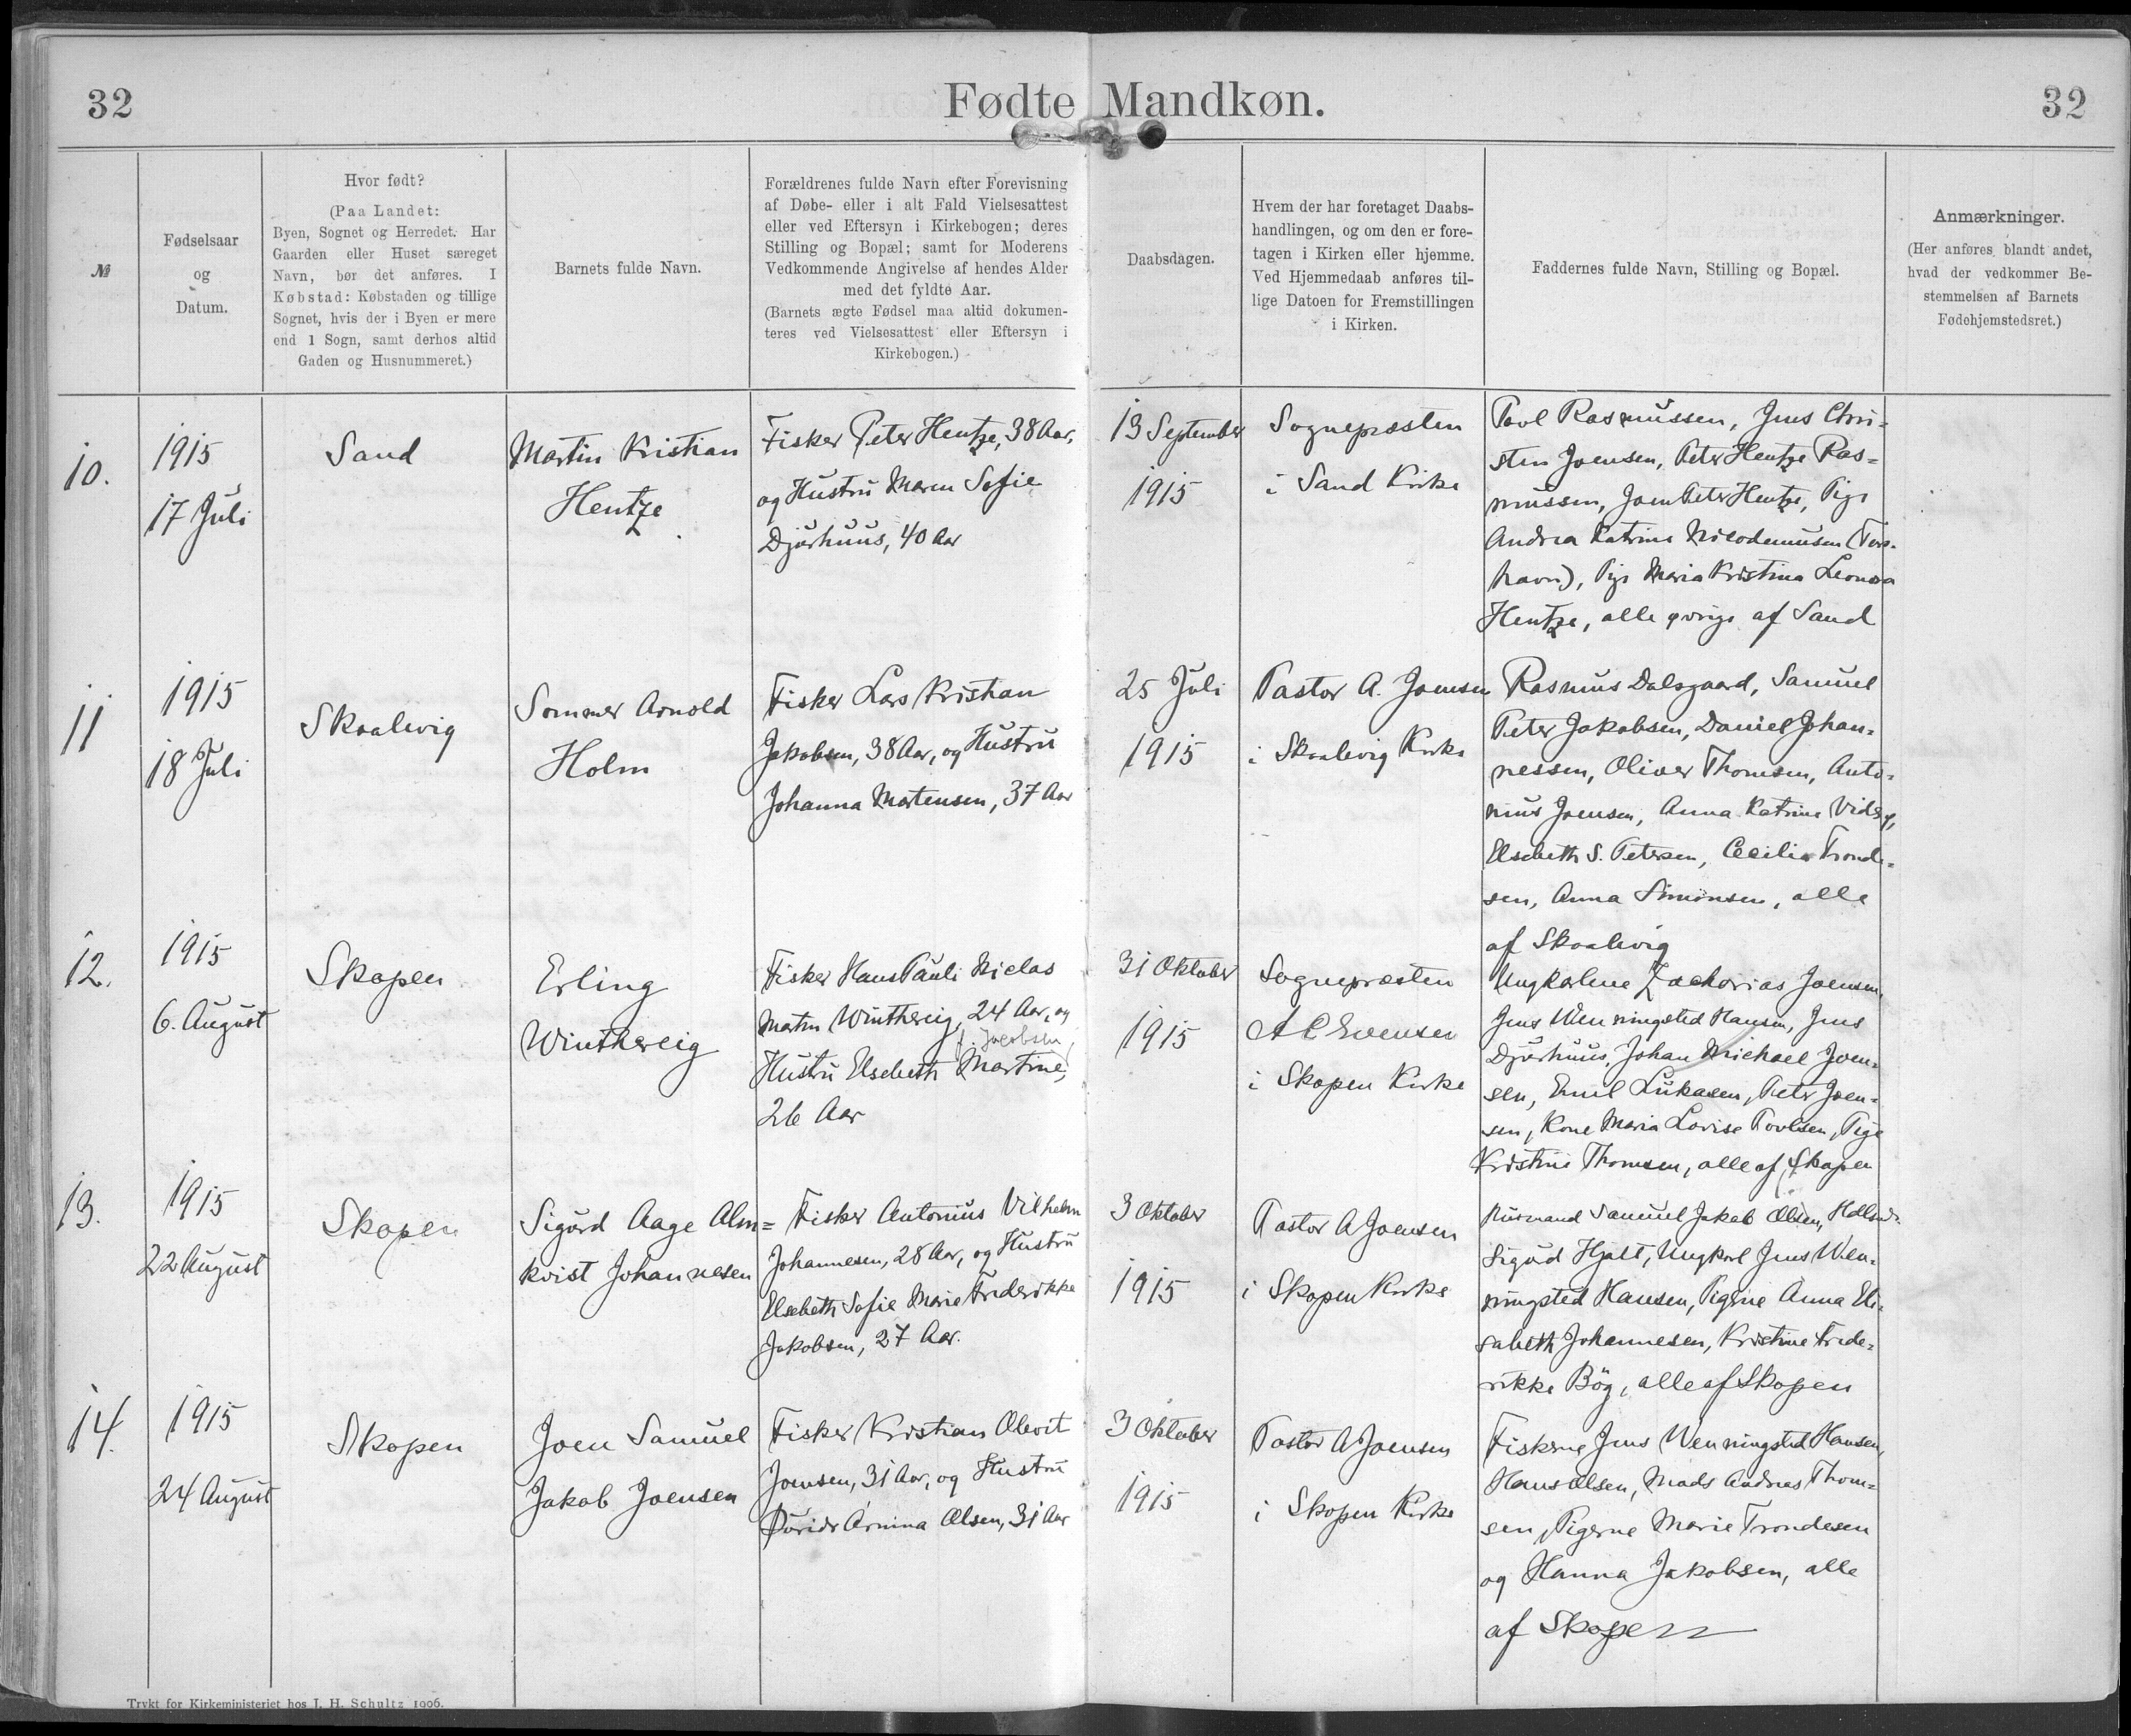 32
Fødte Mandkøn.
32
№
Fødselsaar
og
Datum.
Hvor født?
(Paa Landet:
Byen, Sognet og Herredet. Har
Gaarden eller Huset særeget
Navn, bør det anføres. I
Købstad: Købstaden og tillige
Sognet, hvis der i Byen er mere
end 1 Sogn, samt derhos altid
Gaden og Husnummeret.)
Barnets fulde Navn.
Forældrenes fulde Navn efter Forevisning
af Døbe- eller i alt Fald Vielsesattest
eller ved Eftersyn i Kirkebogen; deres
Stilling og Bopæl; samt for Moderens
Vedkommende Angivelse af hendes Alder
med det fyldte Aar.
(Barnets ægte Fødsel maa altid dokumen-
teres ved Vielsesattest eller Eftersyn i
Kirkebogen.)
Daabsdagen.
Hvem der har foretaget Daabs-
handlingen, og om den er fore-
tagen i Kirken eller hjemme.
Ved Hjemmedaab anføres til-
lige Datoen for Fremstillingen
i Kirken.
Faddernes fulde Navn, Stilling og Bopæl.
Anmærkninger.
(Her anføres blandt andet,
hvad der vedkommer Be-
stemmelsen af Barnets
Fødehjemstedsret.)
10.
1915
17 Juli
Sand
Martin Kristian
Hentze
Fisker Peter Hentze, 38 Aar,
og Hustru Maren Sofie
Djurhuus, 40 Aar
19 September
1915
Sognepræsten
i Sand Kirke
Povl Rasmussen, Jens Chri=
sten Joensen, Peter Hentze Ras=
mussen, Joen Peter Hentze, Pige
Andrea Katrine Nicodemusen (Tors-
havn), Pige Maria Kristina Leonora
Hentze, alle øvrige af Sand
11
1915
18 Juli
Skaalevig
Sommer Arnold
Holm
Fisker Lars Kristian
Jakobsen, 38 Aar, og Hustru
Johanna Mortensen, 37 Aar
25 Juli
1915
Pastor A. Joensen
i Skaalevig Kirke
Rasmus Dalsgaard, Samuel
Peter Jakobsen, Daniel Johan=
nessen, Oliver Thomsen, Anto=
nius Joensen, Anna Katrine Viderø,
Elsebeth S. Petersen, Cecilia Tronde=
sen, Anna Simonsen, alle
af Skaalevig
12.
1915
6. August
Skopen
Erling
Winthereig
Fisker Hans Pauli Niclas
Winthereig, 24 Aar, og
f. Jacobsen,
Hustru Elsebeth Martine,
26 Aar
31 Oktober
1915
Sognepræsten
A C Evensen
i Skopen Kirke
Ungkarlene Zacharias Joensen,
Jens Wenningsted Hansen, Jens
Djurhuus, Johan Michael Joen=
sen, Emil Lukasen, Peter Joen=
sen, Kone Maria Lovise Povlsen, Pige
Kristine Thomsen, alle af Skopen
13.
1915
22 August
Skopen
Sigurd Aage Alm=
kvist Johannesen
Fisker Antonius Vilhelm
Johannesen, 28 Aar, og Hustru
Elsebeth Sofie Marie Frederikke
Jakobsen, 27 Aar.
3 Oktober
1915
Pastor A Joensen
i Skopen Kirke
Husmand Samuel Jakob Olsen,
Sigurd Hjalt, Ungkarl Jens Wen=
ningsted Hansen, Pigerne Anna Eli=
sabeth Johannesen, Kristine Frede=
rikke Bøg, alle af Skopen
14.
1915
24 August
Skopen
Joen Samuel
Jakob Joensen
Fisker Kristian Olevit
Joensen, 31 Aar, og Hustru
Olsen, 31 Aar
3 Oktober
1915
Pastor A Joensen
i Skopen Kirke
Fiskerne Jens Wenningsted Hansen,
Hans Olsen, Mads Andreas Thom=
sen, Pigerne Marie Trondesen
og Hanna Jakobsen, alle
af Skopen
Trykt for Kirkeministeriet hos J. H. Schultz 1906.